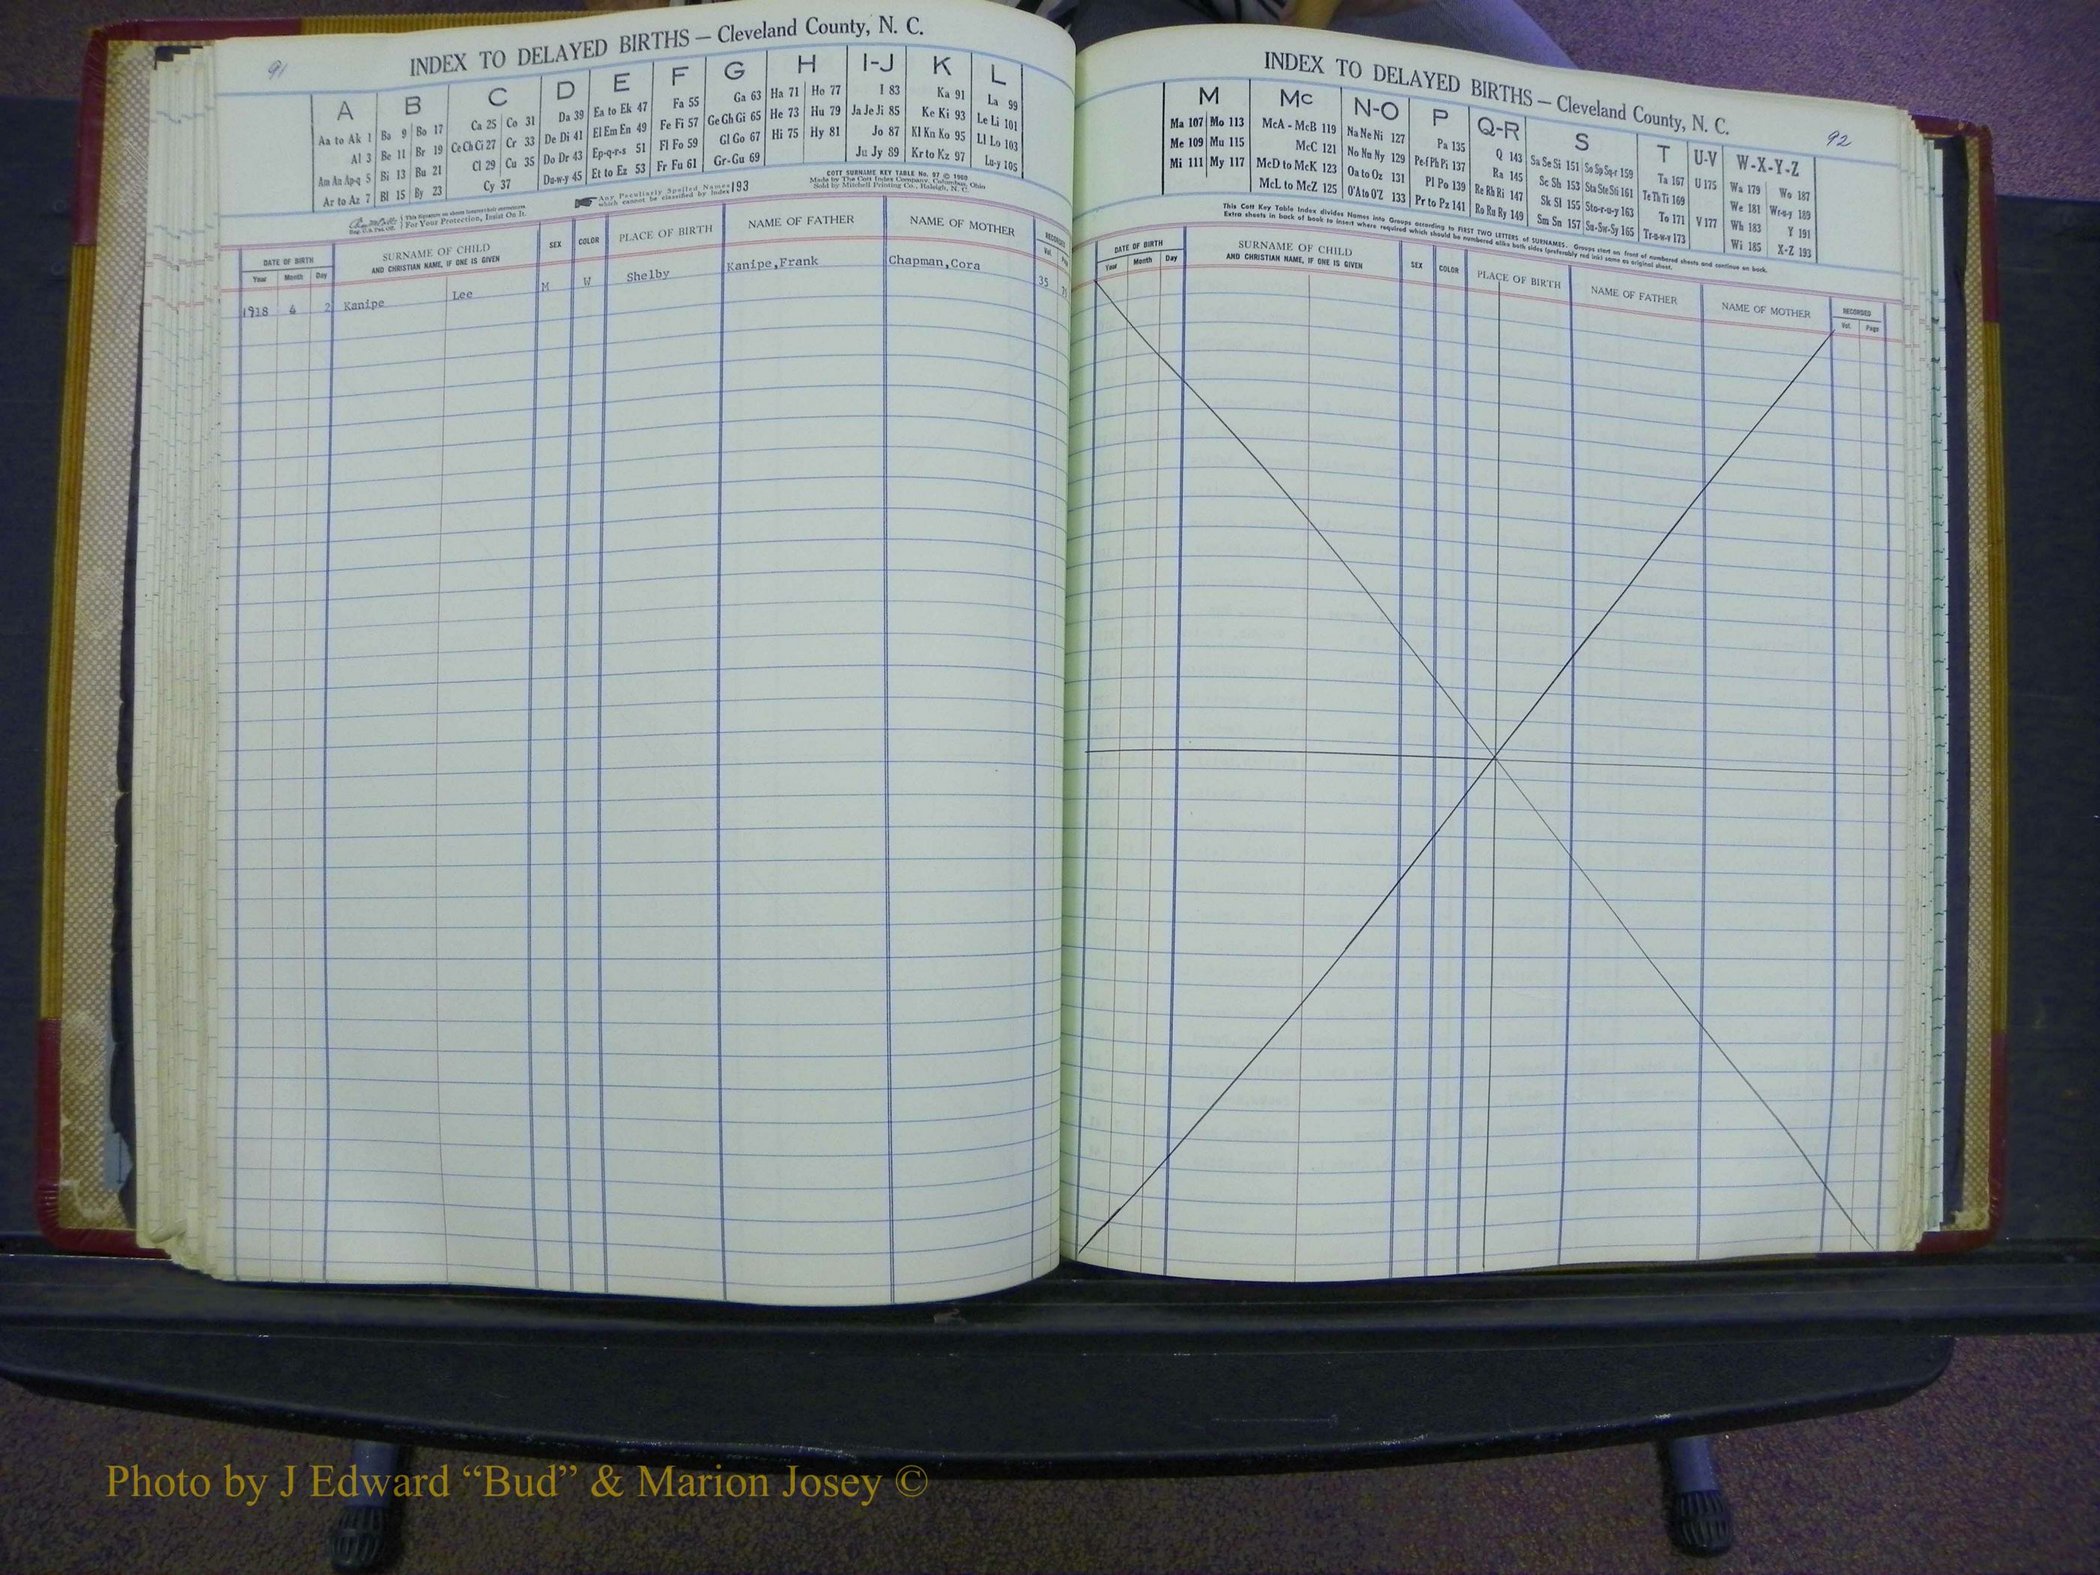 91
INDEX TO DELAYED BIRTHS — Cleveland County, N. C.
A B C D E F G H I-J K L
Aa to Ak 1 Ba 9 Bo 17 Ca 25 Co 31 Da 39 Ea to Ek 47 Fa 55 Ga 63 Ha 71 Ho 77 I 83 Ka 91 La 99
Al 3 Be 11 Br 19 Ce Ch Ci 27 Cr 33 De Di 41 El Em En 49 Fe Fi 57 Ge Gh Gi 65 He 73 Hu 79 Ja Je Ji 85 Ke Ki 93 Le Li 101
Am An Ap-q 5 Bi 13 Bu 21 Cl 29 Cu 35 Do Dr 43 Ep-q-r-s 51 Fl Fo 59 Gl Go 67 Hi 75 Hy 81 Jo 87 Kl Kn Ko 95 Ll Lo 103
Ar to Az 7 Bl 15 By 23 Cy 37 Du-w-y 45 Et to Ez 53 Fr Fu 61 Gr-Gu 69 Ju Jy 89 Kr to Kz 97 Lu-y 105
This Signature on sheets insures their correctness.
For Your Protection, Insist On It.
Any Peculiarly Spelled Names
which cannot be classified by Index 193
COTT SURNAME KEY TABLE No. 97 © 1960
Made by The Cott Index Company, Columbus, Ohio
Sold by Mitchell Printing Co., Raleigh, N. C.
DATE OF BIRTH SURNAME OF CHILD SEX COLOR PLACE OF BIRTH NAME OF FATHER NAME OF MOTHER RECORDED
Year Month Day AND CHRISTIAN NAME, IF ONE IS GIVEN Vol.
1918 4 2 Kanipe Lee M W Shelby Kanipe,Frank Chapman,Cora 35
INDEX TO DELAYED BIRTHS — Cleveland County, N. C.
92
M Mc N-O P Q-R S T U-V W-X-Y-Z
Ma 107 Mo 113 McA - McB 119 Na Ne Ni 127 Pa 135 Q 143 Sa Se Si 151 So Sp Sq-r 159 Ta 167 U 175 Wa 179 Wo 187
Me 109 Mu 115 McC 121 No Nu Ny 129 Pe-f Ph Pi 137 Ra 145 Sc Sh 153 Sta Ste Sti 161 Te Th Ti 169 V 177 We 181 Wr-u-y 189
Mi 111 My 117 McD to McK 123 Oa to Oz 131 Pl Po 139 Re Rh Ri 147 Sk Sl 155 Sto-r-u-y 163 To 171 Wh 183 Y 191
McL to McZ 125 O'A to O'Z 133 Pr to Pz 141 Ro Ru Ry 149 Sm Sn 157 Su-Sw-Sy 165 Tr-u-w-y 173 Wi 185 X-Z 193
This Cott Key Table Index divides Names into Groups according to FIRST TWO LETTERS of SURNAMES. Groups start on front of numbered sheets and continue on back.
Extra sheets in back of book to insert where required which should be numbered alike both sides (preferably red ink) same as original sheet.
DATE OF BIRTH SURNAME OF CHILD SEX COLOR PLACE OF BIRTH NAME OF FATHER NAME OF MOTHER RECORDED
Year Month Day AND CHRISTIAN NAME, IF ONE IS GIVEN Vol. Page
Photo by J Edward “Bud” & Marion Josey ©